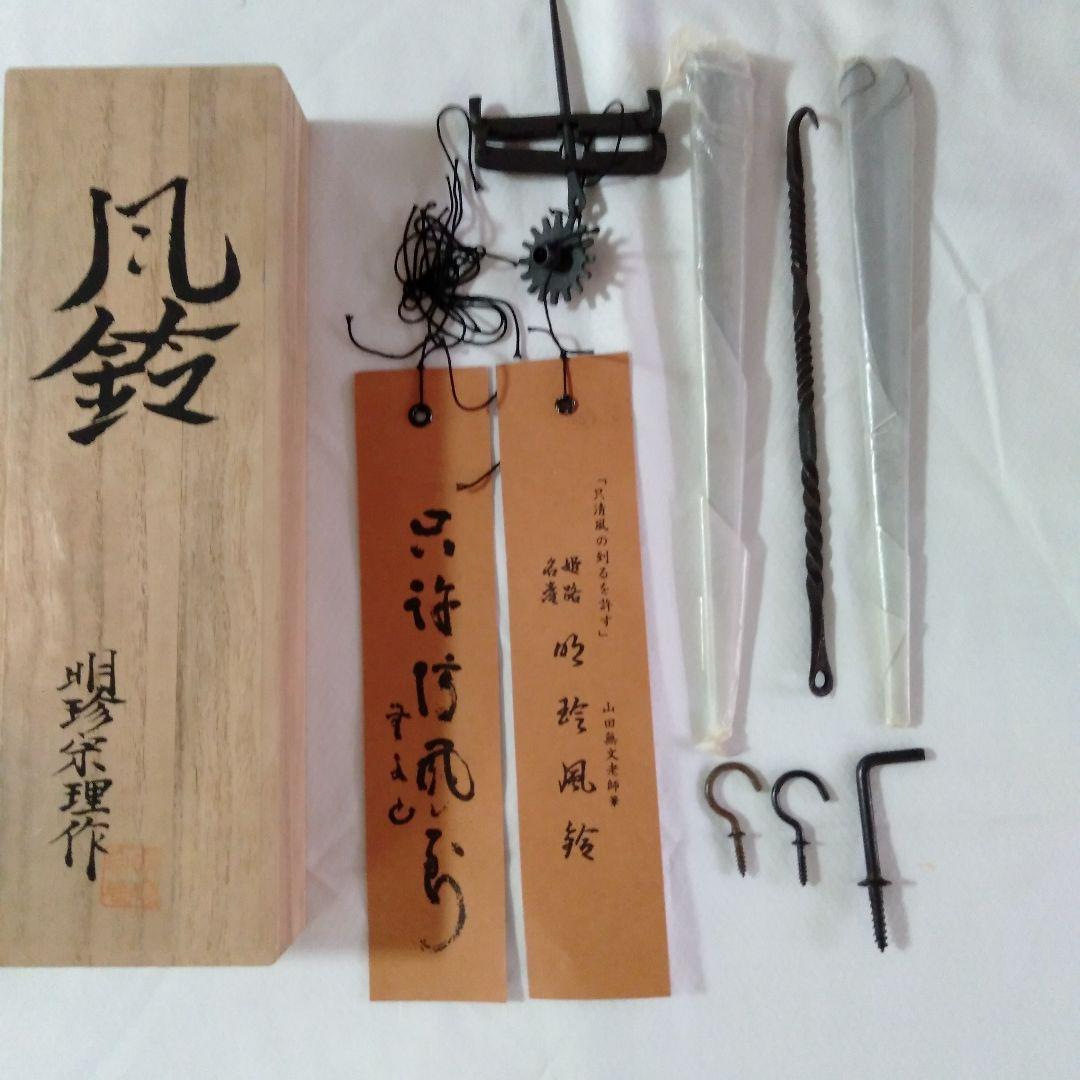 風鈴
明珍宗理作
只許清風到
無文山
「只清風の到るを許す」
山田無文老師筆
姫路
名産
明珍風鈴